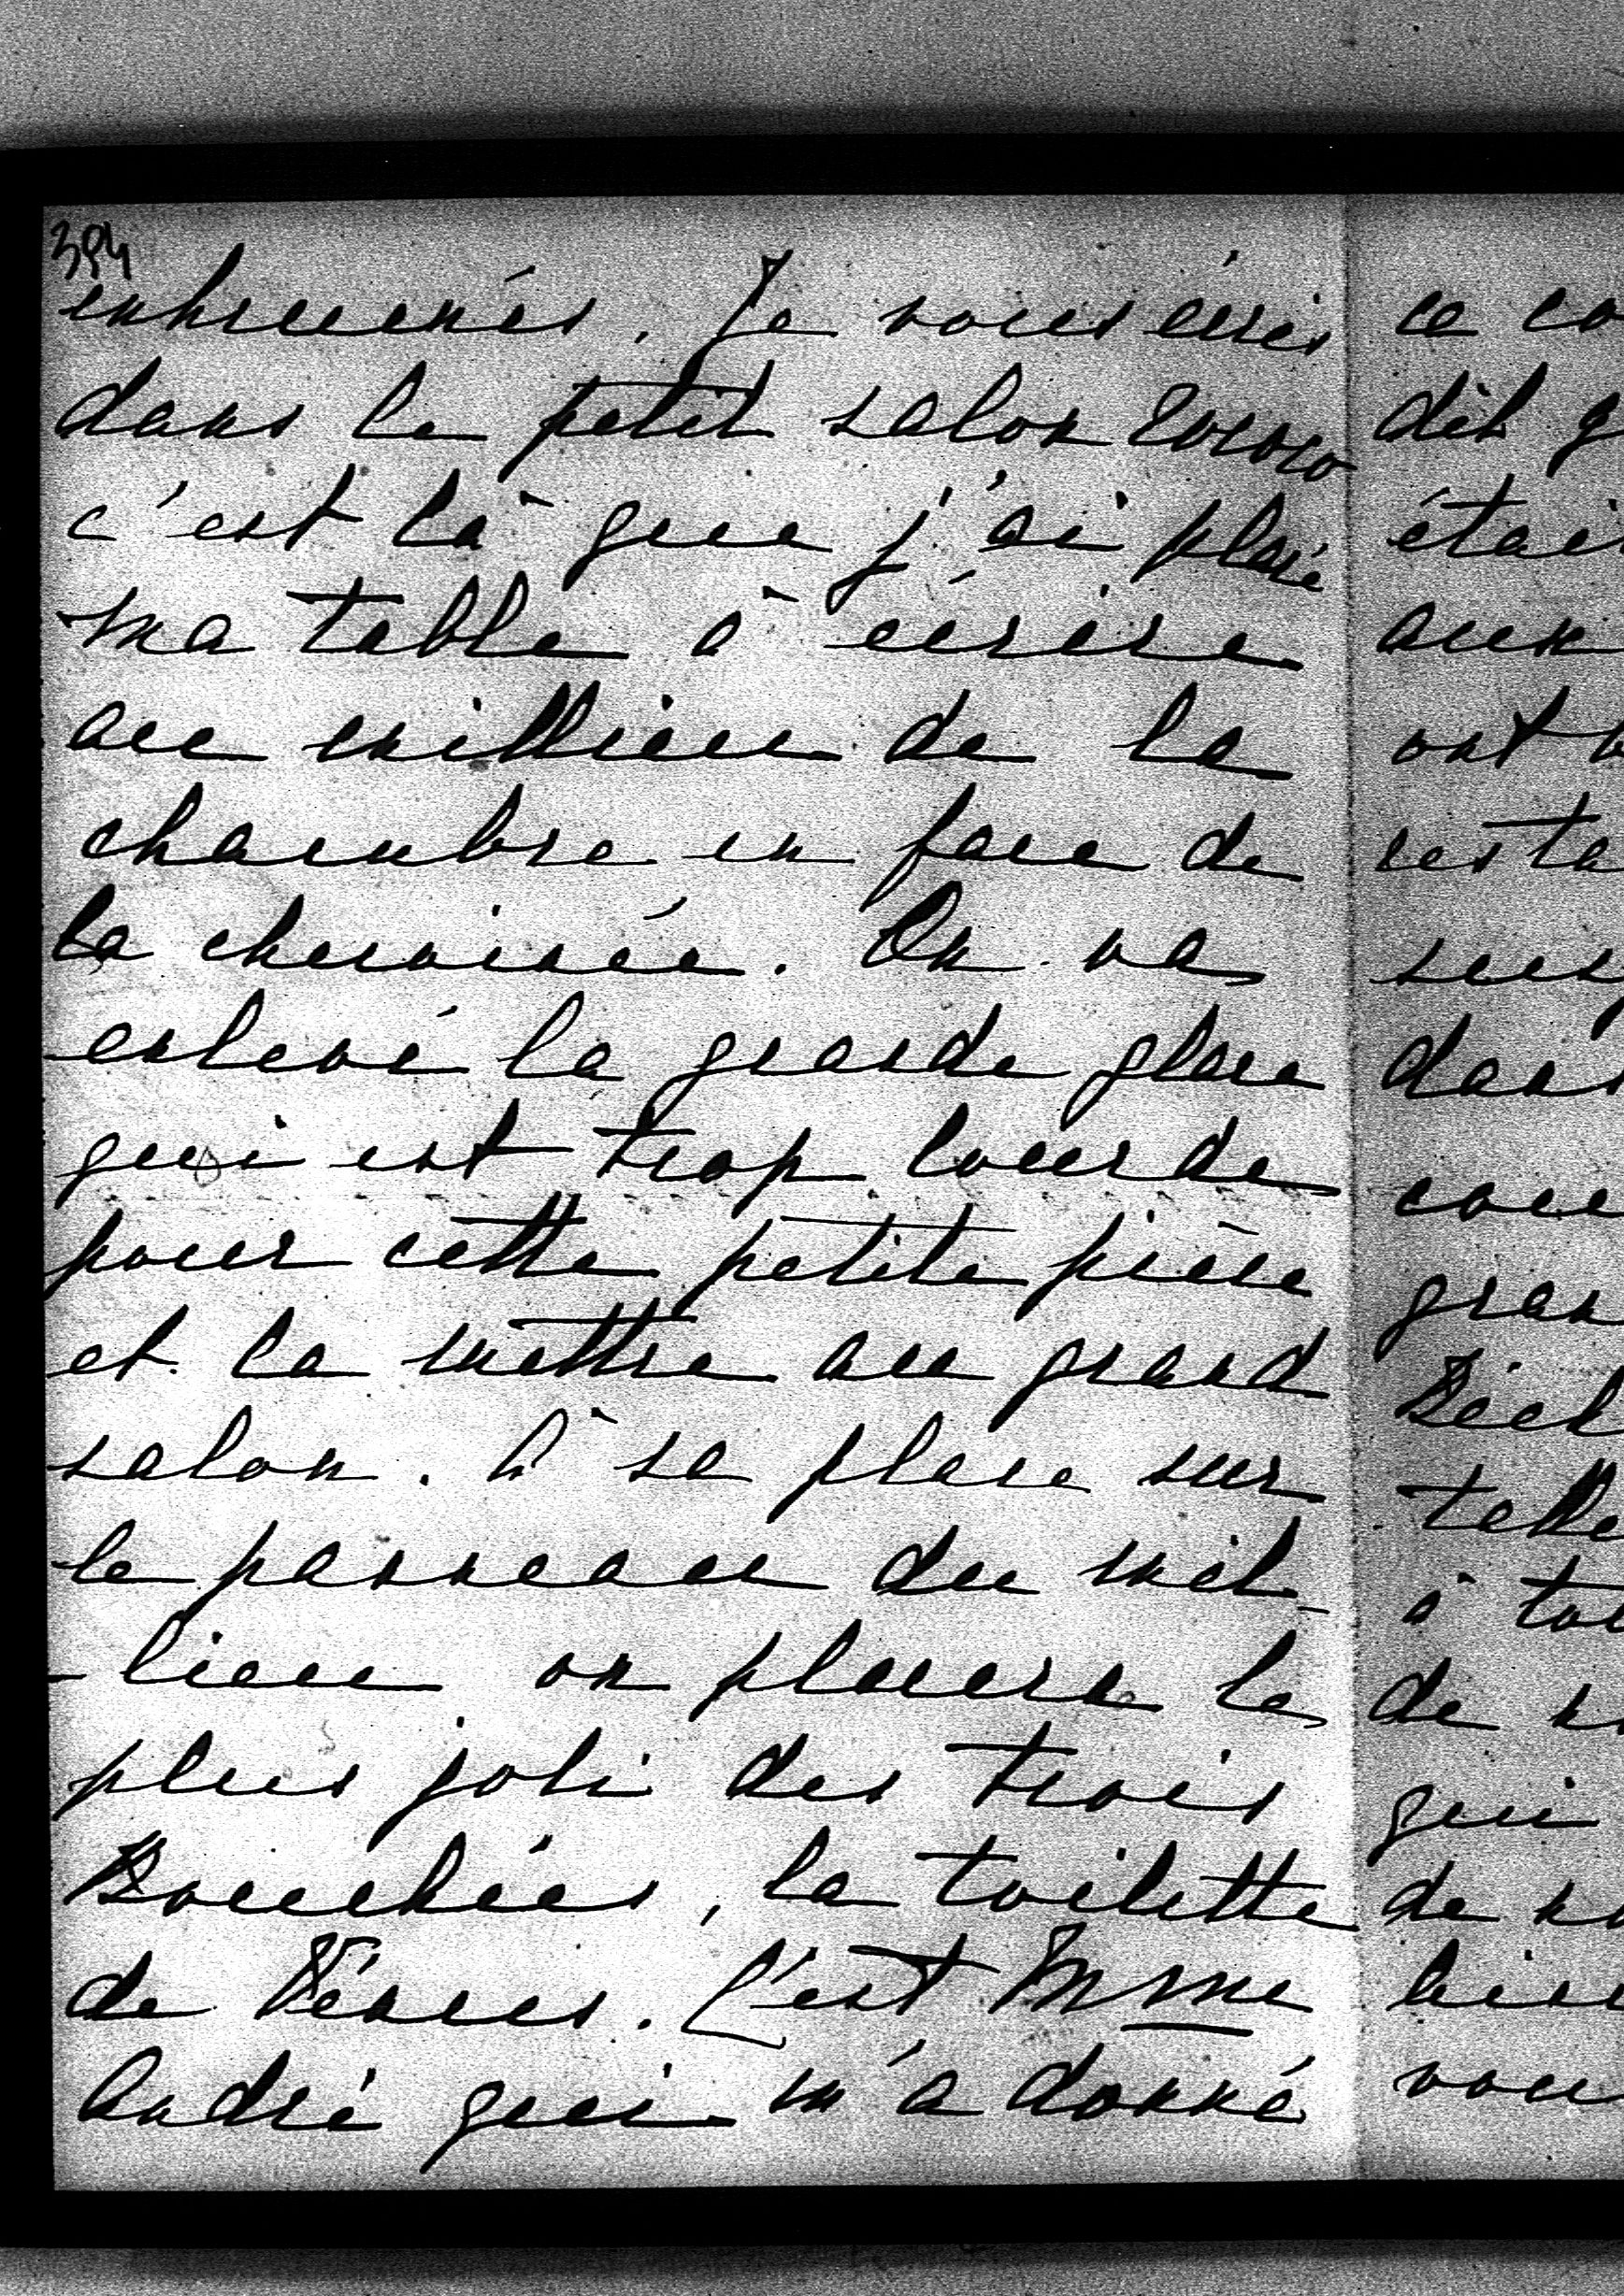 384
enhrumés. Je vous écris
dans le petit salon rococo
c'est là que j'ai placé
ma table à écrire
au millieu de la
chambre en face de
la cheminée. On va
enlevé la grande glace
qui est trop lourde
pour cette petite pièce
et la mettre au grand
salon. À sa place sur
le panneau du mil-
-lieu on placera le
plus joli des trois
Bouchées, la toilette
de Vénus. C'est Mme
André qui m'a donné
ce co
dit q
étai
aux
ont
resta
sus
dans
cou
gran
telle
à tou
de
qui
de
bien
vou